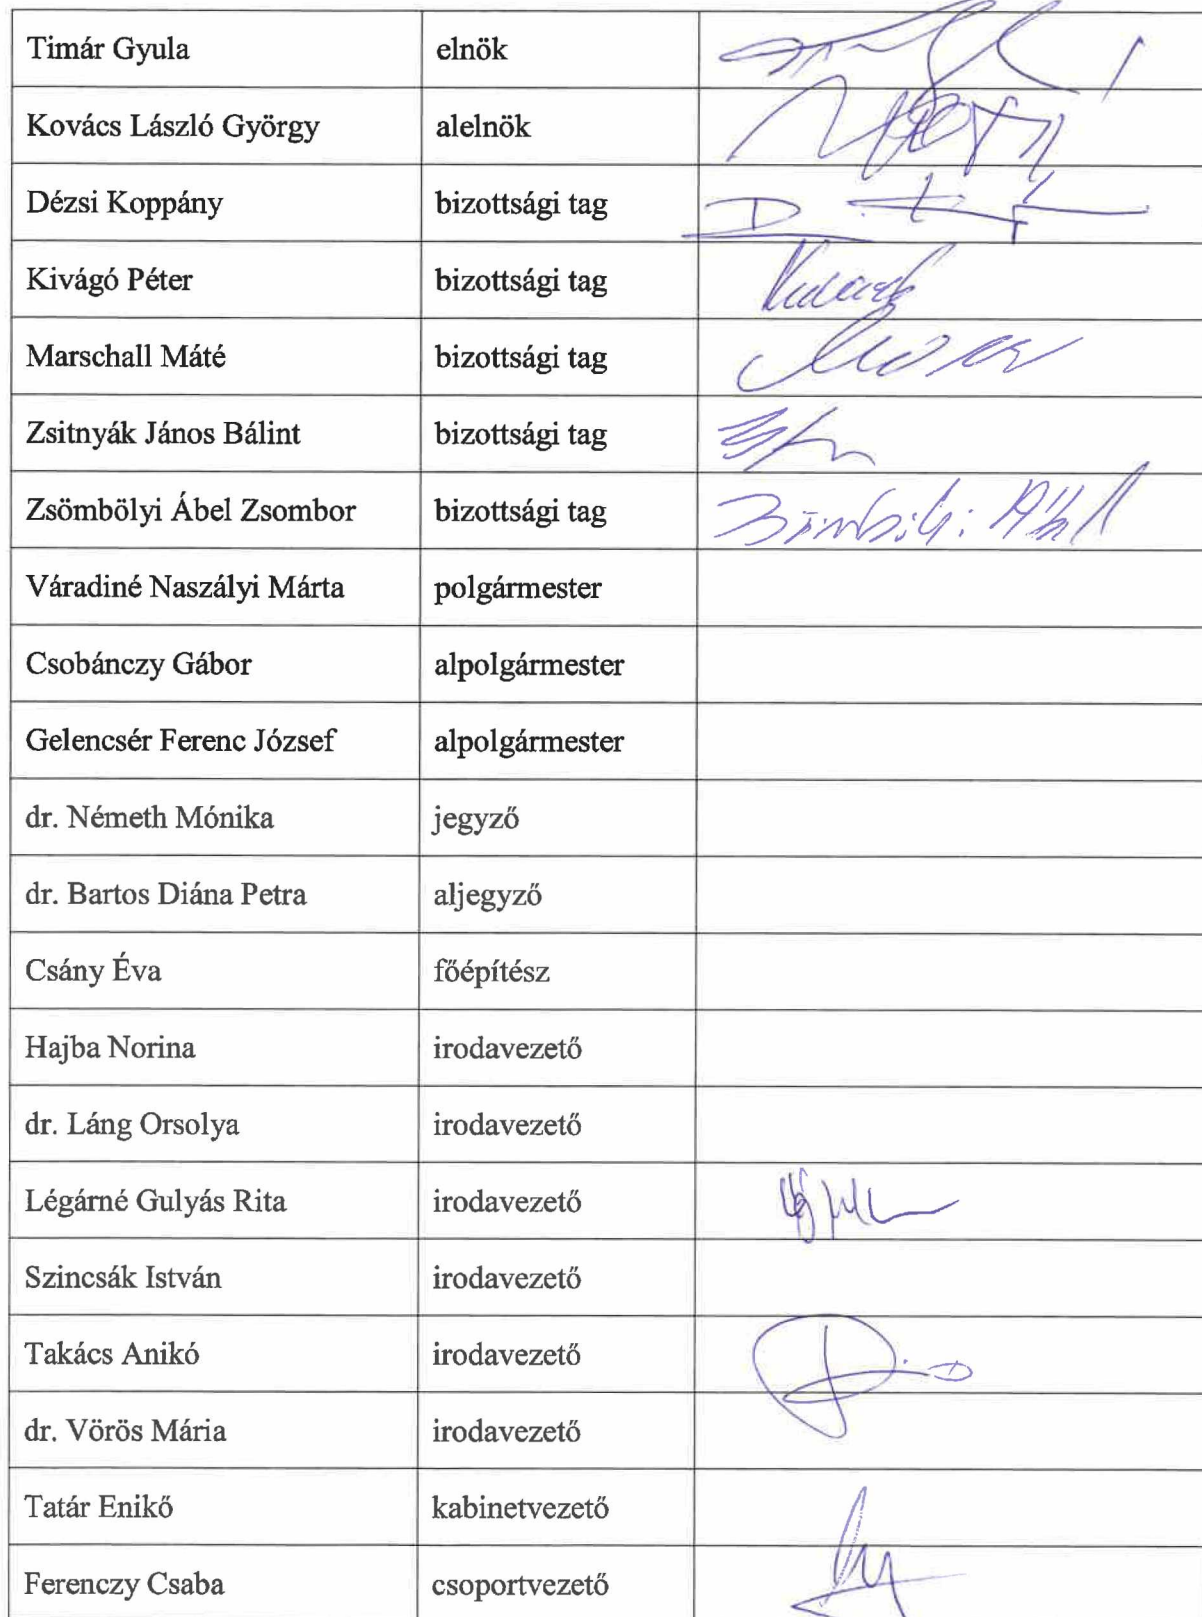 Timár Gyula elnök
Kovács László György alelnök
Dézsi Koppány bizottsági tag
Kivágó Péter bizottsági tag
Marschall Máté bizottsági tag
Zsitnyák János Bálint bizottsági tag
Zsömbölyi Ábel Zsombor bizottsági tag
Váradiné Naszályi Márta polgármester
Csobánczy Gábor alpolgármester
Gelencsér Ferenc József alpolgármester
dr. Németh Mónika jegyző
dr. Bartos Diána Petra aljegyző
Csány Éva főépítész
Hajba Norina irodavezető
dr. Láng Orsolya irodavezető
Légárné Gulyás Rita irodavezető
Szincsák István irodavezető
Takács Anikó irodavezető
dr. Vörös Mária irodavezető
Tatár Enikő kabinetvezető
Ferenczy Csaba csoportvezető